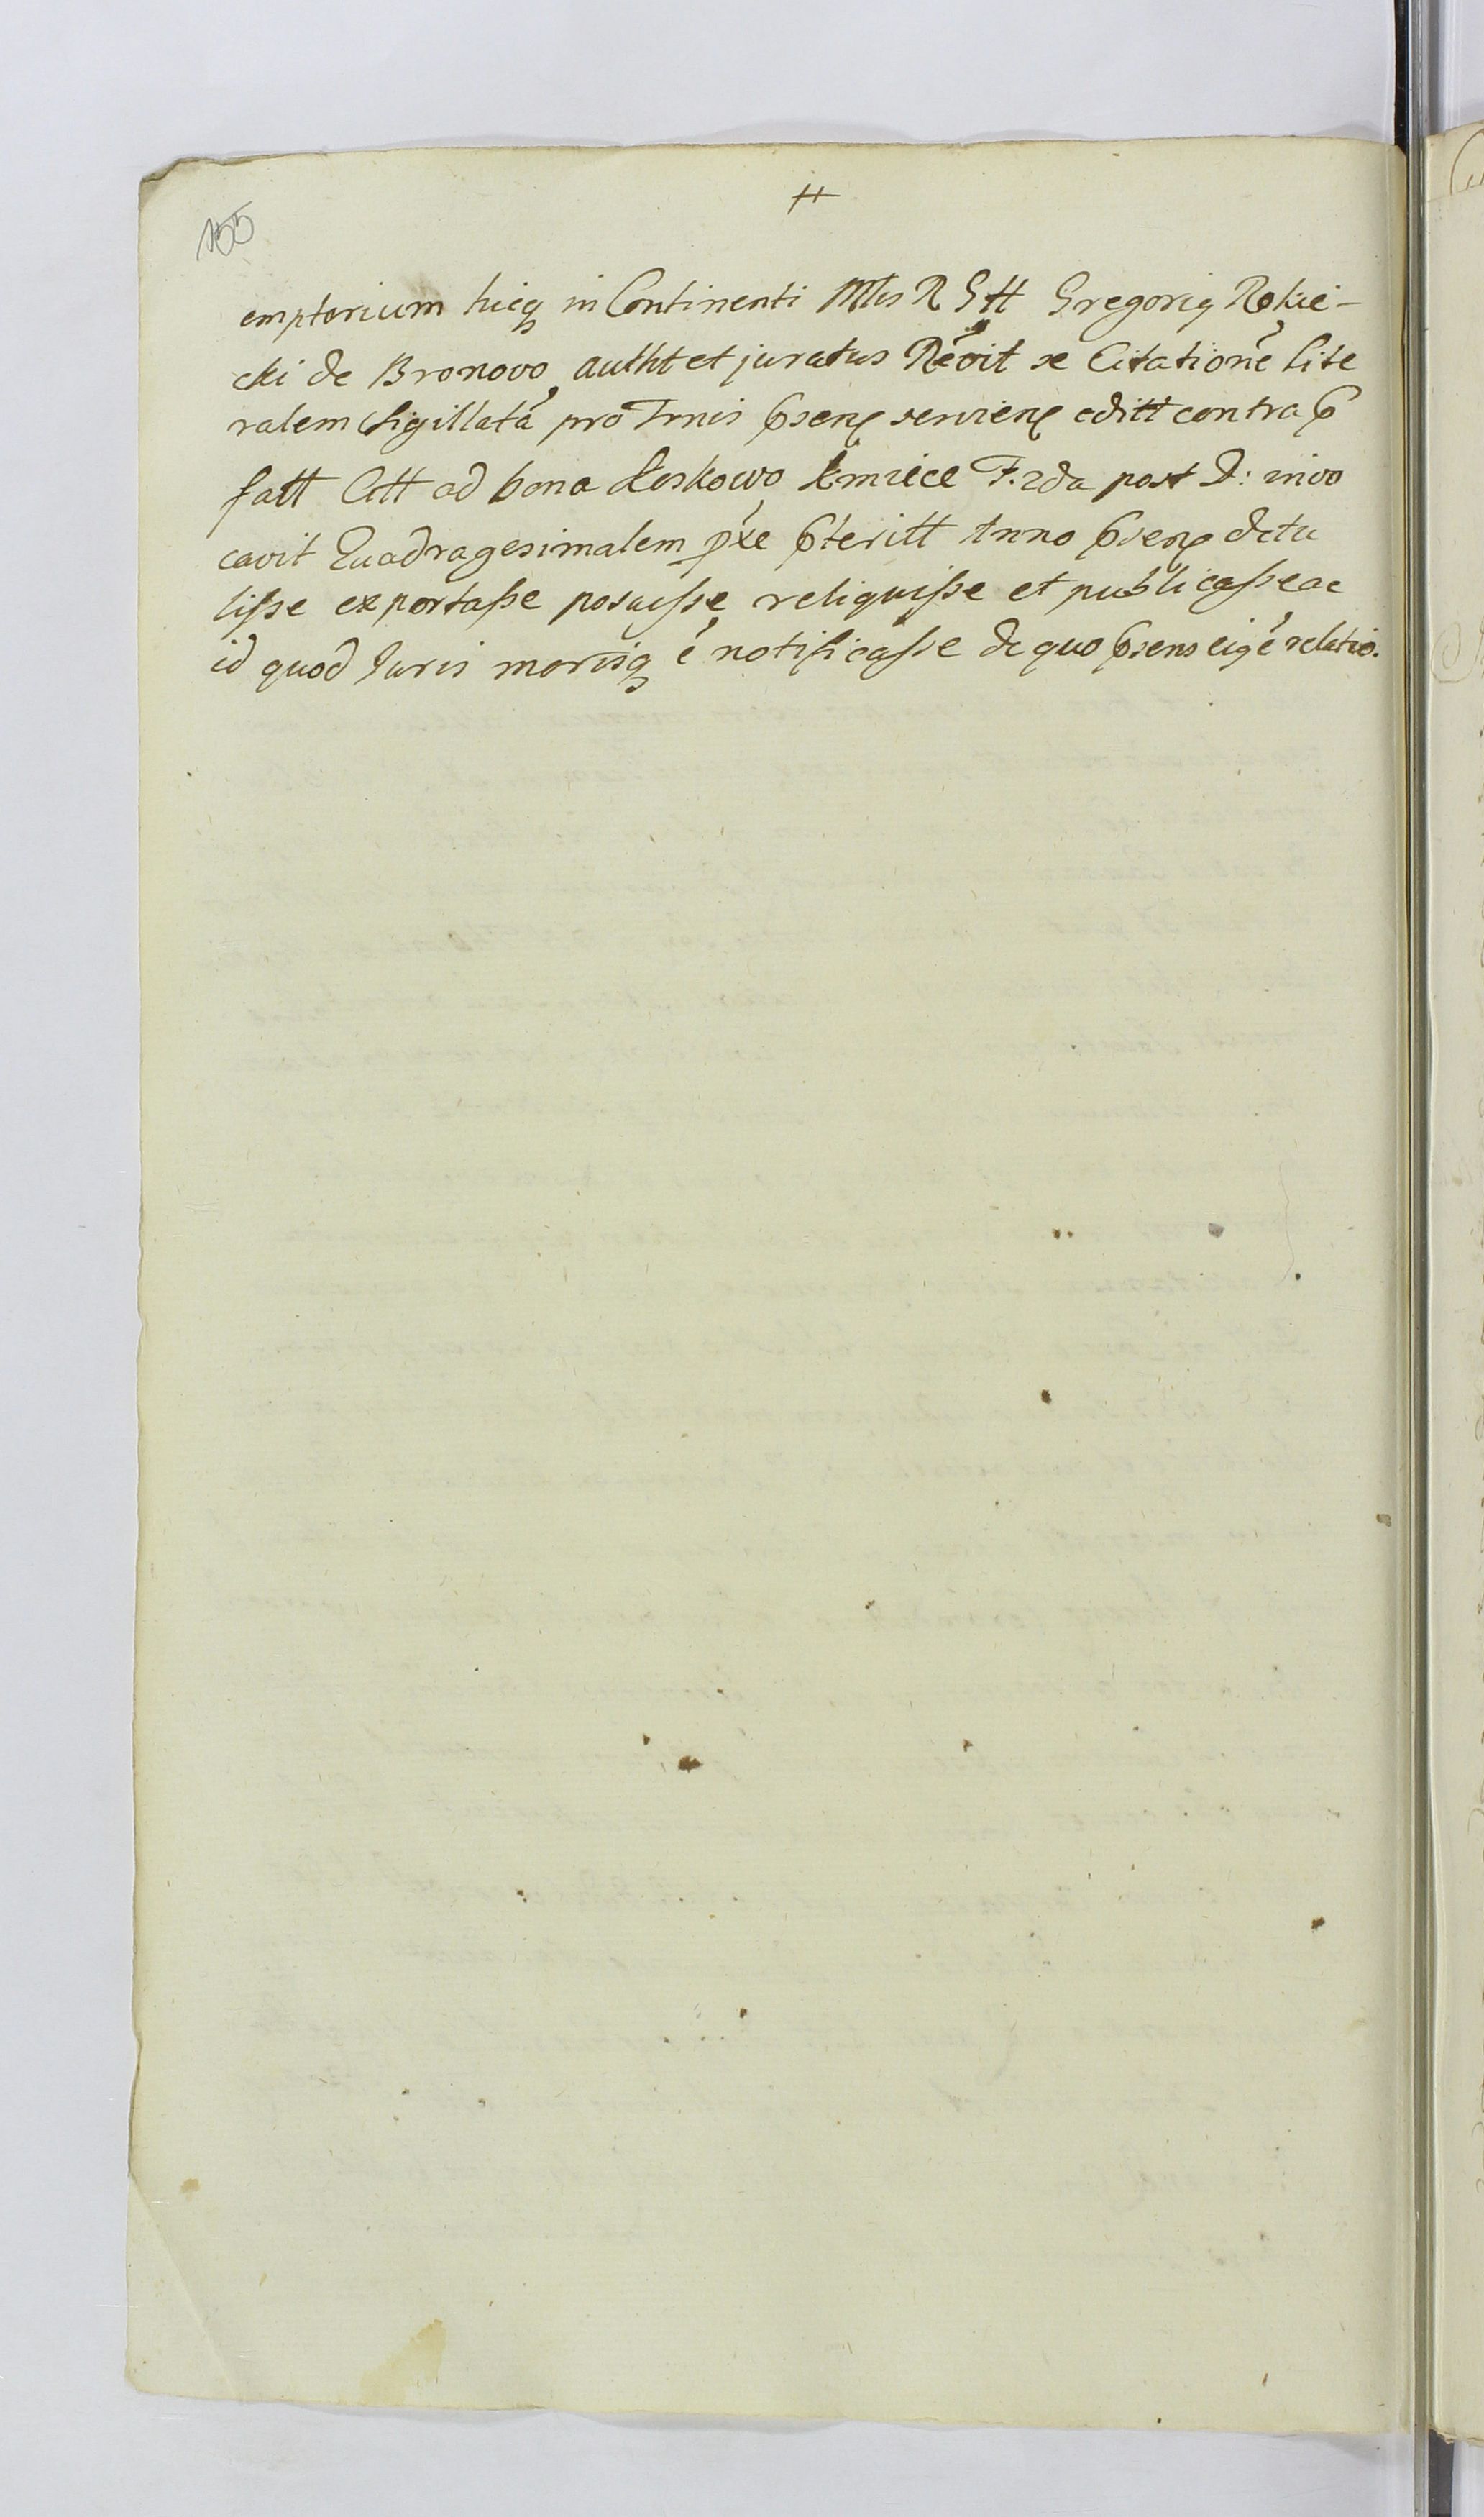 155
emptorium hicq in Continenti Mtis R Gtt Gregoriq Rokie-
cki de Bronovo autht et juratus Récvit se Citationé lite
ralem Sigillatá pro Trnis psenq servienq editt contra p
fatt Citt ad bona Loskowo kmiece F. 2da post D: invo
cavit Quadragesimalem pxe pteritt Anno psenq detu
lisse exportasse posuisse reliquisse et publicasse ac
id quod Juris morisq é notificasse de quo psens eiq é relatio.